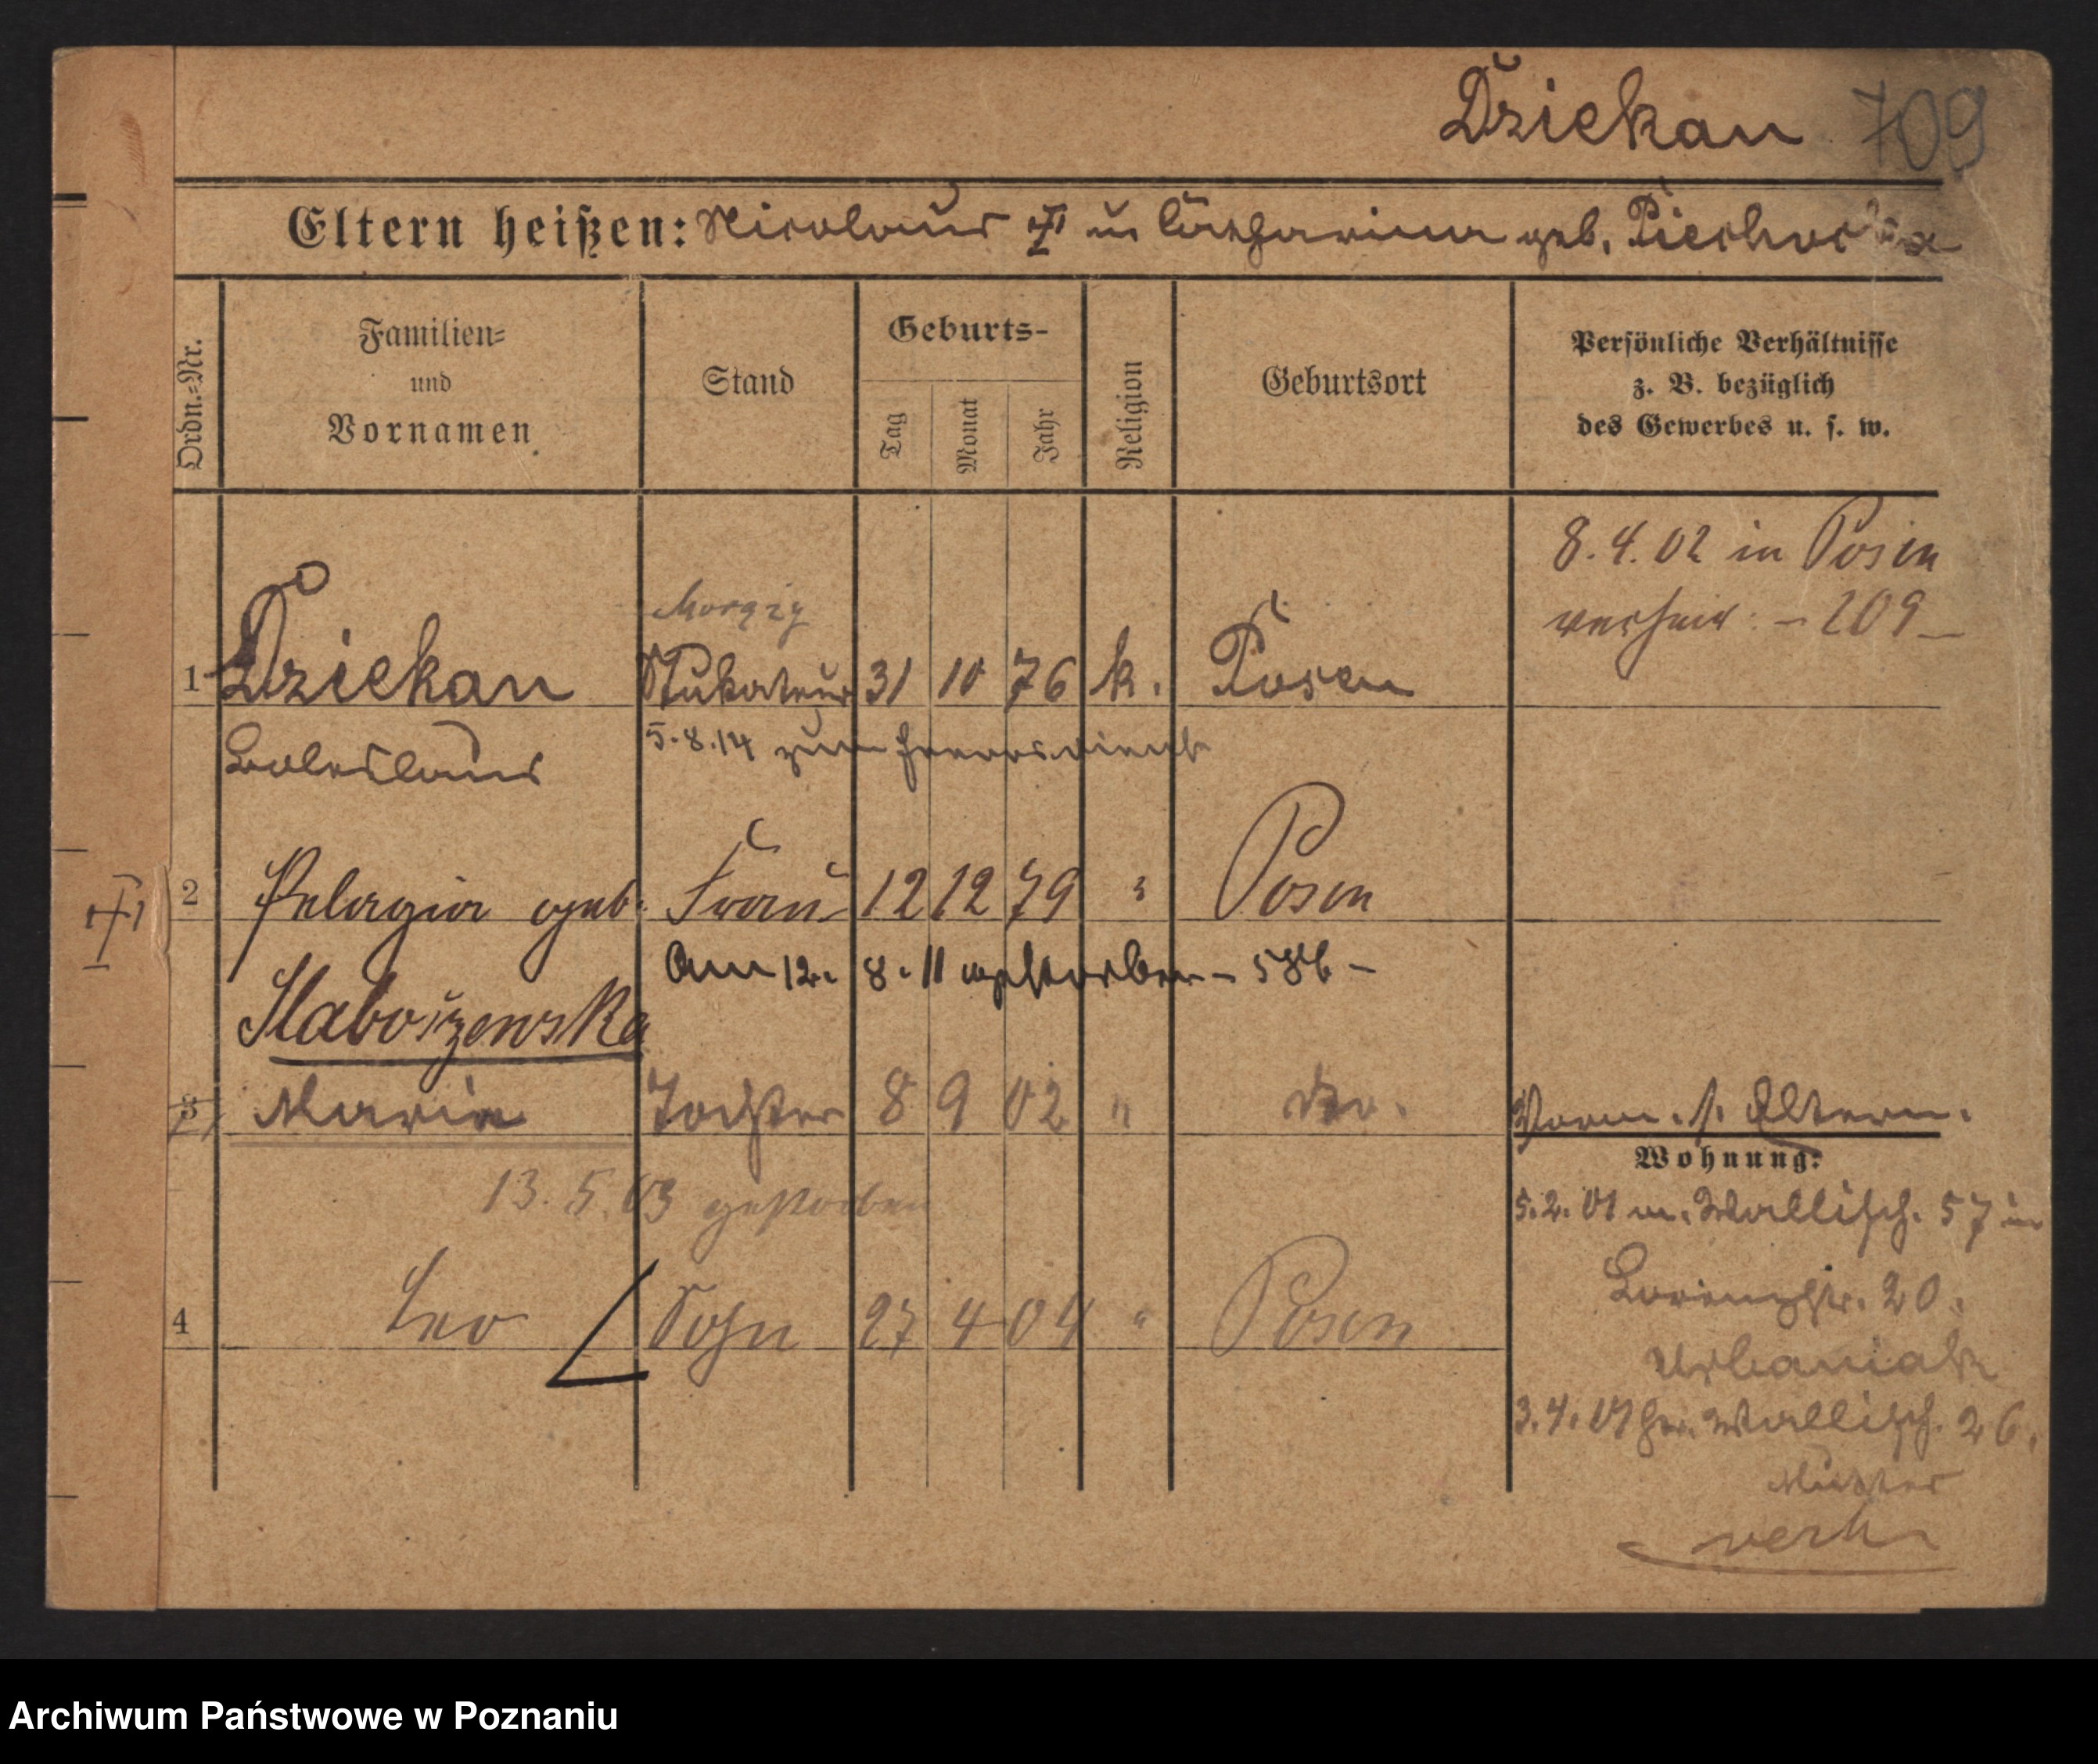 Dziekan 709
Eltern heißen: Nicolaus † u Catharina geb. Piechocka
Ordn.-Nr.
Familien-
und
Vornamen
Stand
Geburts-
Tag
Monat
Jahr
Religion
Geburtsort
Persönliche Verhältnisse
z. B. bezüglich
des Gewerbes u. s. w.
8.4.02 in Posen
verheir. - 209 -
1 Dziekan Stukateur 31 10 76 k. Posen
Boleslaus 5.8.14 zum Heeresdienst
2 Pelagia geb. Frau 12 12 79 " Posen
Am 12. 8. 11 gestorben - 586 -
Slaboszewska
3 Maria Tochter 8 9 02 " do.
13. 5. 03 gestorben
4 Leo Sohn 27 4 04 " Posen
Vorm. s. Eltern.
Wohnung:
5.2.01 n. Wallisch. 57 in
Lorenzstr. 20.
Urbaniak
3.4.01 Wallisch. 26.
Mutter
verh
Archiwum Państwowe w Poznaniu